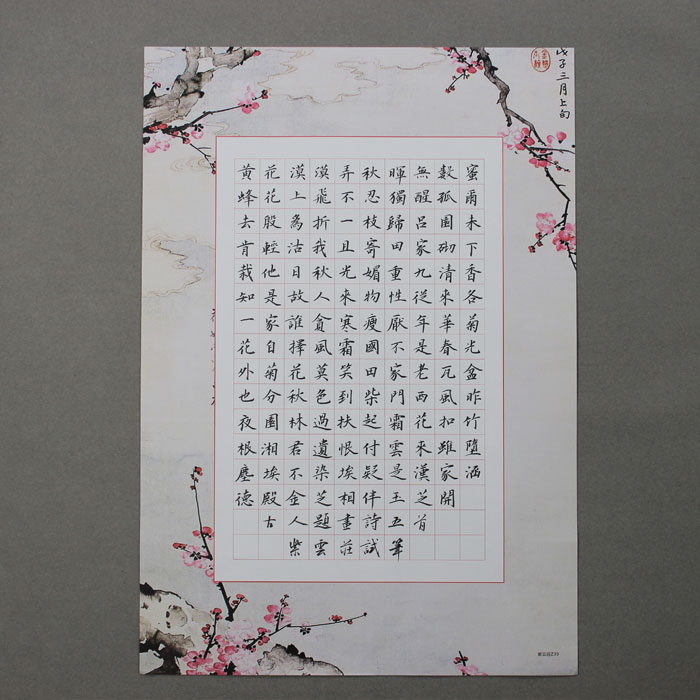 戊子三月上旬
蜜爾未下香各菊光盆昨竹墮涵
數孤圃砌清來華春瓦風扣雖家開
無醒呂家九從年是老西花來漢芝首
暉獨歸田重性厭不家門霜雲是王五筆
秋忍枝寄媚物瘦國田柴起付疑伴詩試
弄不一且光來寒霜笑到扶恨埃相畫莊
漠飛折我秋人貪風莫色過遺染芝題雲
漠上為沽日故誰擇花秋林君不金人紫
花花殷輕他是家自菊分圃湘埃殿古
黃蜂去肯栽知一花外也夜根塵德